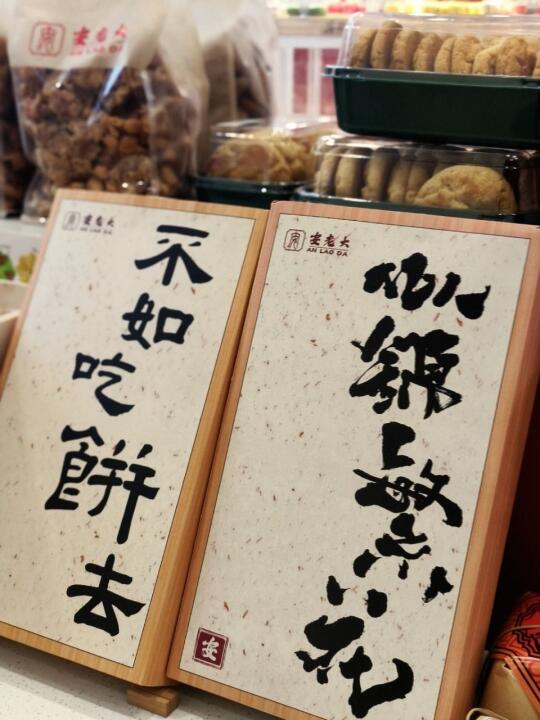 安老大
AN LAO DA
安老大
AN LAO DA
似錦繁花
安
安老大
AN LAO DA
不如吃餅去